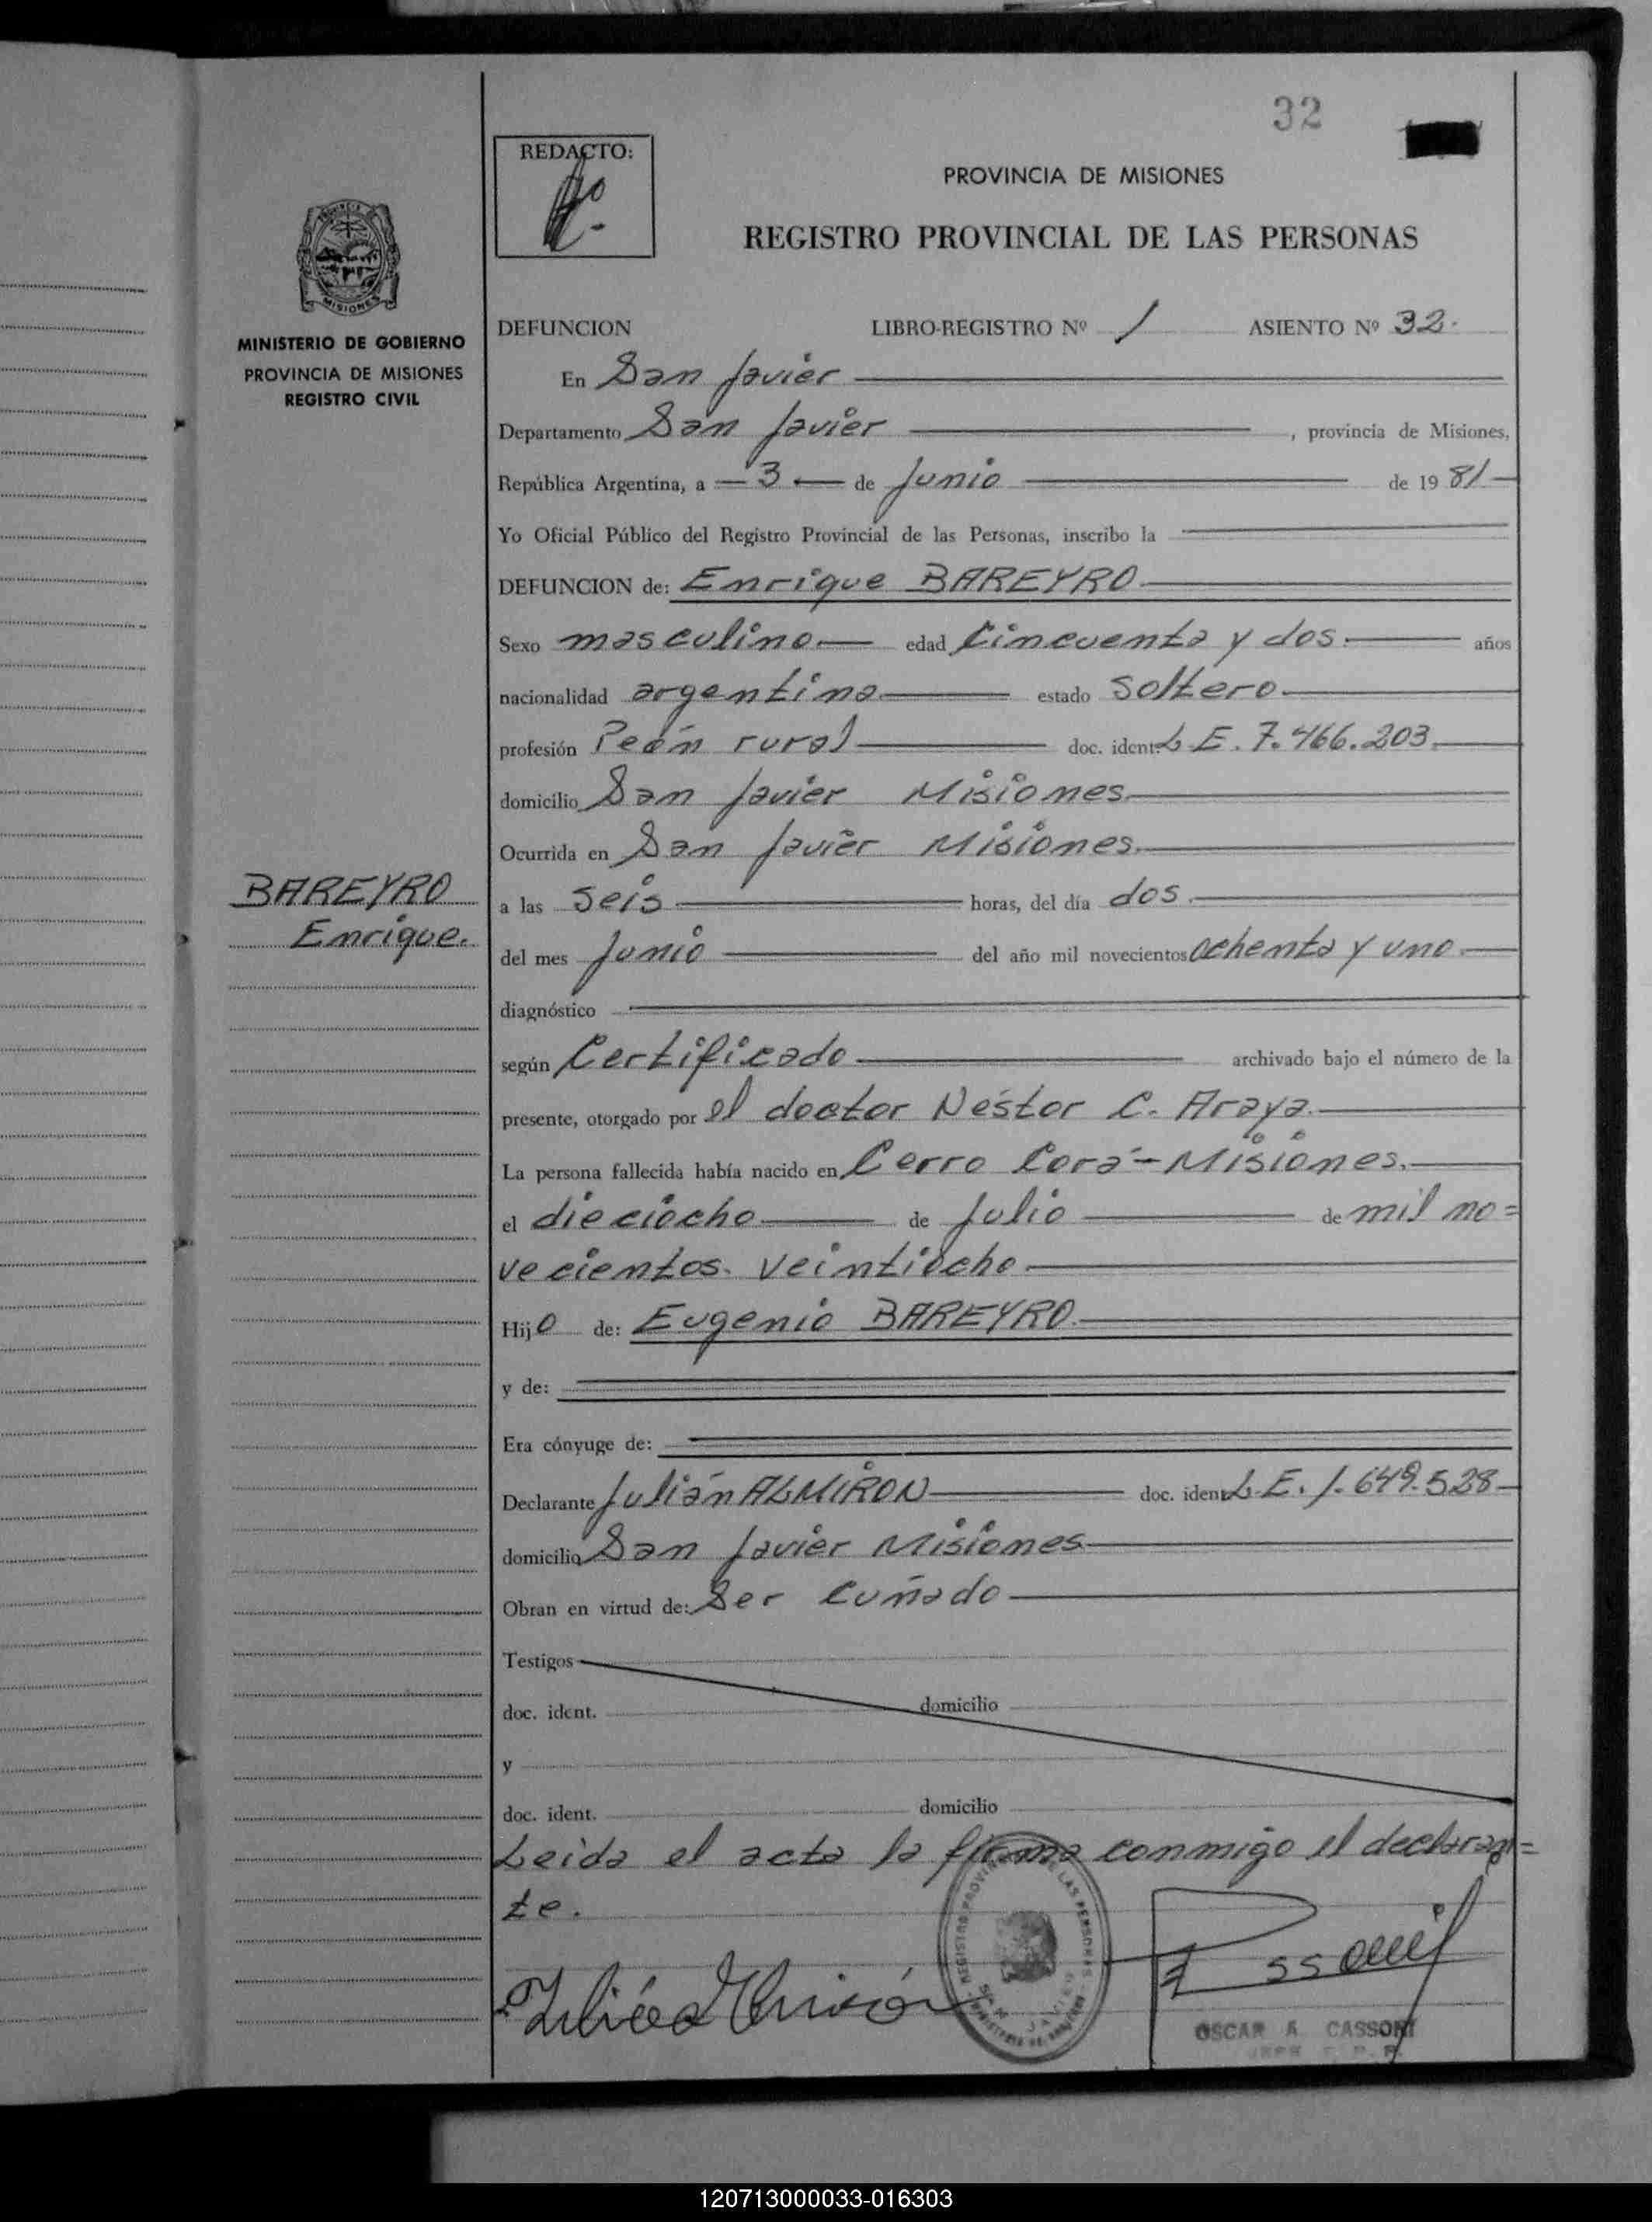 32
REDACTO:
PROVINCIA DE MISIONES
REGISTRO PROVINCIAL DE LAS PERSONAS
MISIONES
MINISTERIO DE GOBIERNO
PROVINCIA DE MISIONES
REGISTRO CIVIL
DEFUNCION LIBRO-REGISTRO Nº 1 ASIENTO Nº 32.
En San Javier
Departamento San Javier, provincia de Misiones,
República Argentina, a 3 de Junio de 1981
Yo Oficial Público del Registro Provincial de las Personas, inscribo la
DEFUNCION de: Enrique BAREYRO
Sexo masculino edad Cincuenta y dos. años
nacionalidad argentina estado Soltero.
profesión Peón rural doc. ident. L.E. 7.466.203.
domicilio San Javier Misiones
Ocurrida en San Javier Misiones.
BAREYRO
Enrique.
a las Seis horas, del día dos.
del mes Junio del año mil novecientos Ochenta y uno
diagnóstico
según Certificado archivado bajo el número de la
presente, otorgado por el doctor Néstor C. Araya.
La persona fallecida había nacido en Cerro Corá-Misiones.
el dieciocho de Julio de mil no=
vecientos veintiocho
Hijo de: Eugenio BAREYRO.
y de:
Era cónyuge de:
Declarante Julián ALMIRON doc. ident. L.E. 1.649.528
domicilio San Javier Misiones
Obran en virtud de: Ser Cuñado
Testigos
doc. ident. domicilio
y
doc. ident. domicilio
Leida el acta la firma conmigo el declaran=
te.
Julián Almirón
OSCAR A. CASSONI
120713000033-016303